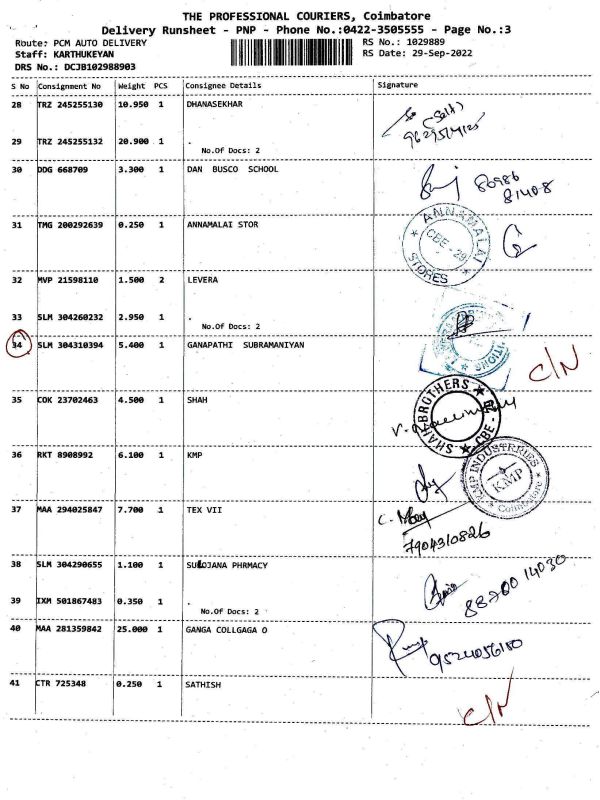 THE PROFESSIONAL COURIERS, Coimbatore
Delivery Runsheet - PNP - Phone No.:0422-3505555 - Page No.:3
Route: PCM AUTO DELIVERY RS No.: 1029889
Staff: KARTHUKEYAN RS Date: 29-Sep-2022
DRS No.: DCJB102988903
S No Consignment No Weight PCS Consignee Details Signature
28 TRZ 245255130 10.950 1 DHANASEKHAR
(Self)
29 TRZ 245255132 20.900 1 .
No.Of Docs: 2
30 DDG 668709 3.300 1 DAN BUSCO SCHOOL
80986
81408
31 TMG 200292639 0.250 1 ANNAMALAI STOR
ANNAMALAI STORES
CBE - 29
32 MVP 21598110 1.500 2 LEVERA
33 SLM 304260232 2.950 1 .
No.Of Docs: 2
34 SLM 304310394 5.400 1 GANAPATHI SUBRAMANIYAN
C/N
35 COK 23702463 4.500 1 SHAH
SHAH BROTHERS
CBE
36 RKT 8908992 6.100 1 KMP
KMP INDUSTRIES
KMP
Coimbatore
37 MAA 294025847 7.700 1 TEX VII
7904310826
38 SLM 304290655 1.100 1 SULOJANA PHRMACY
88700 14030
39 IXM 501867483 0.350 1 .
No.Of Docs: 2
40 MAA 281359842 25.000 1 GANGA COLLGAGA O
9524056150
41 CTR 725348 0.250 1 SATHISH
C/N